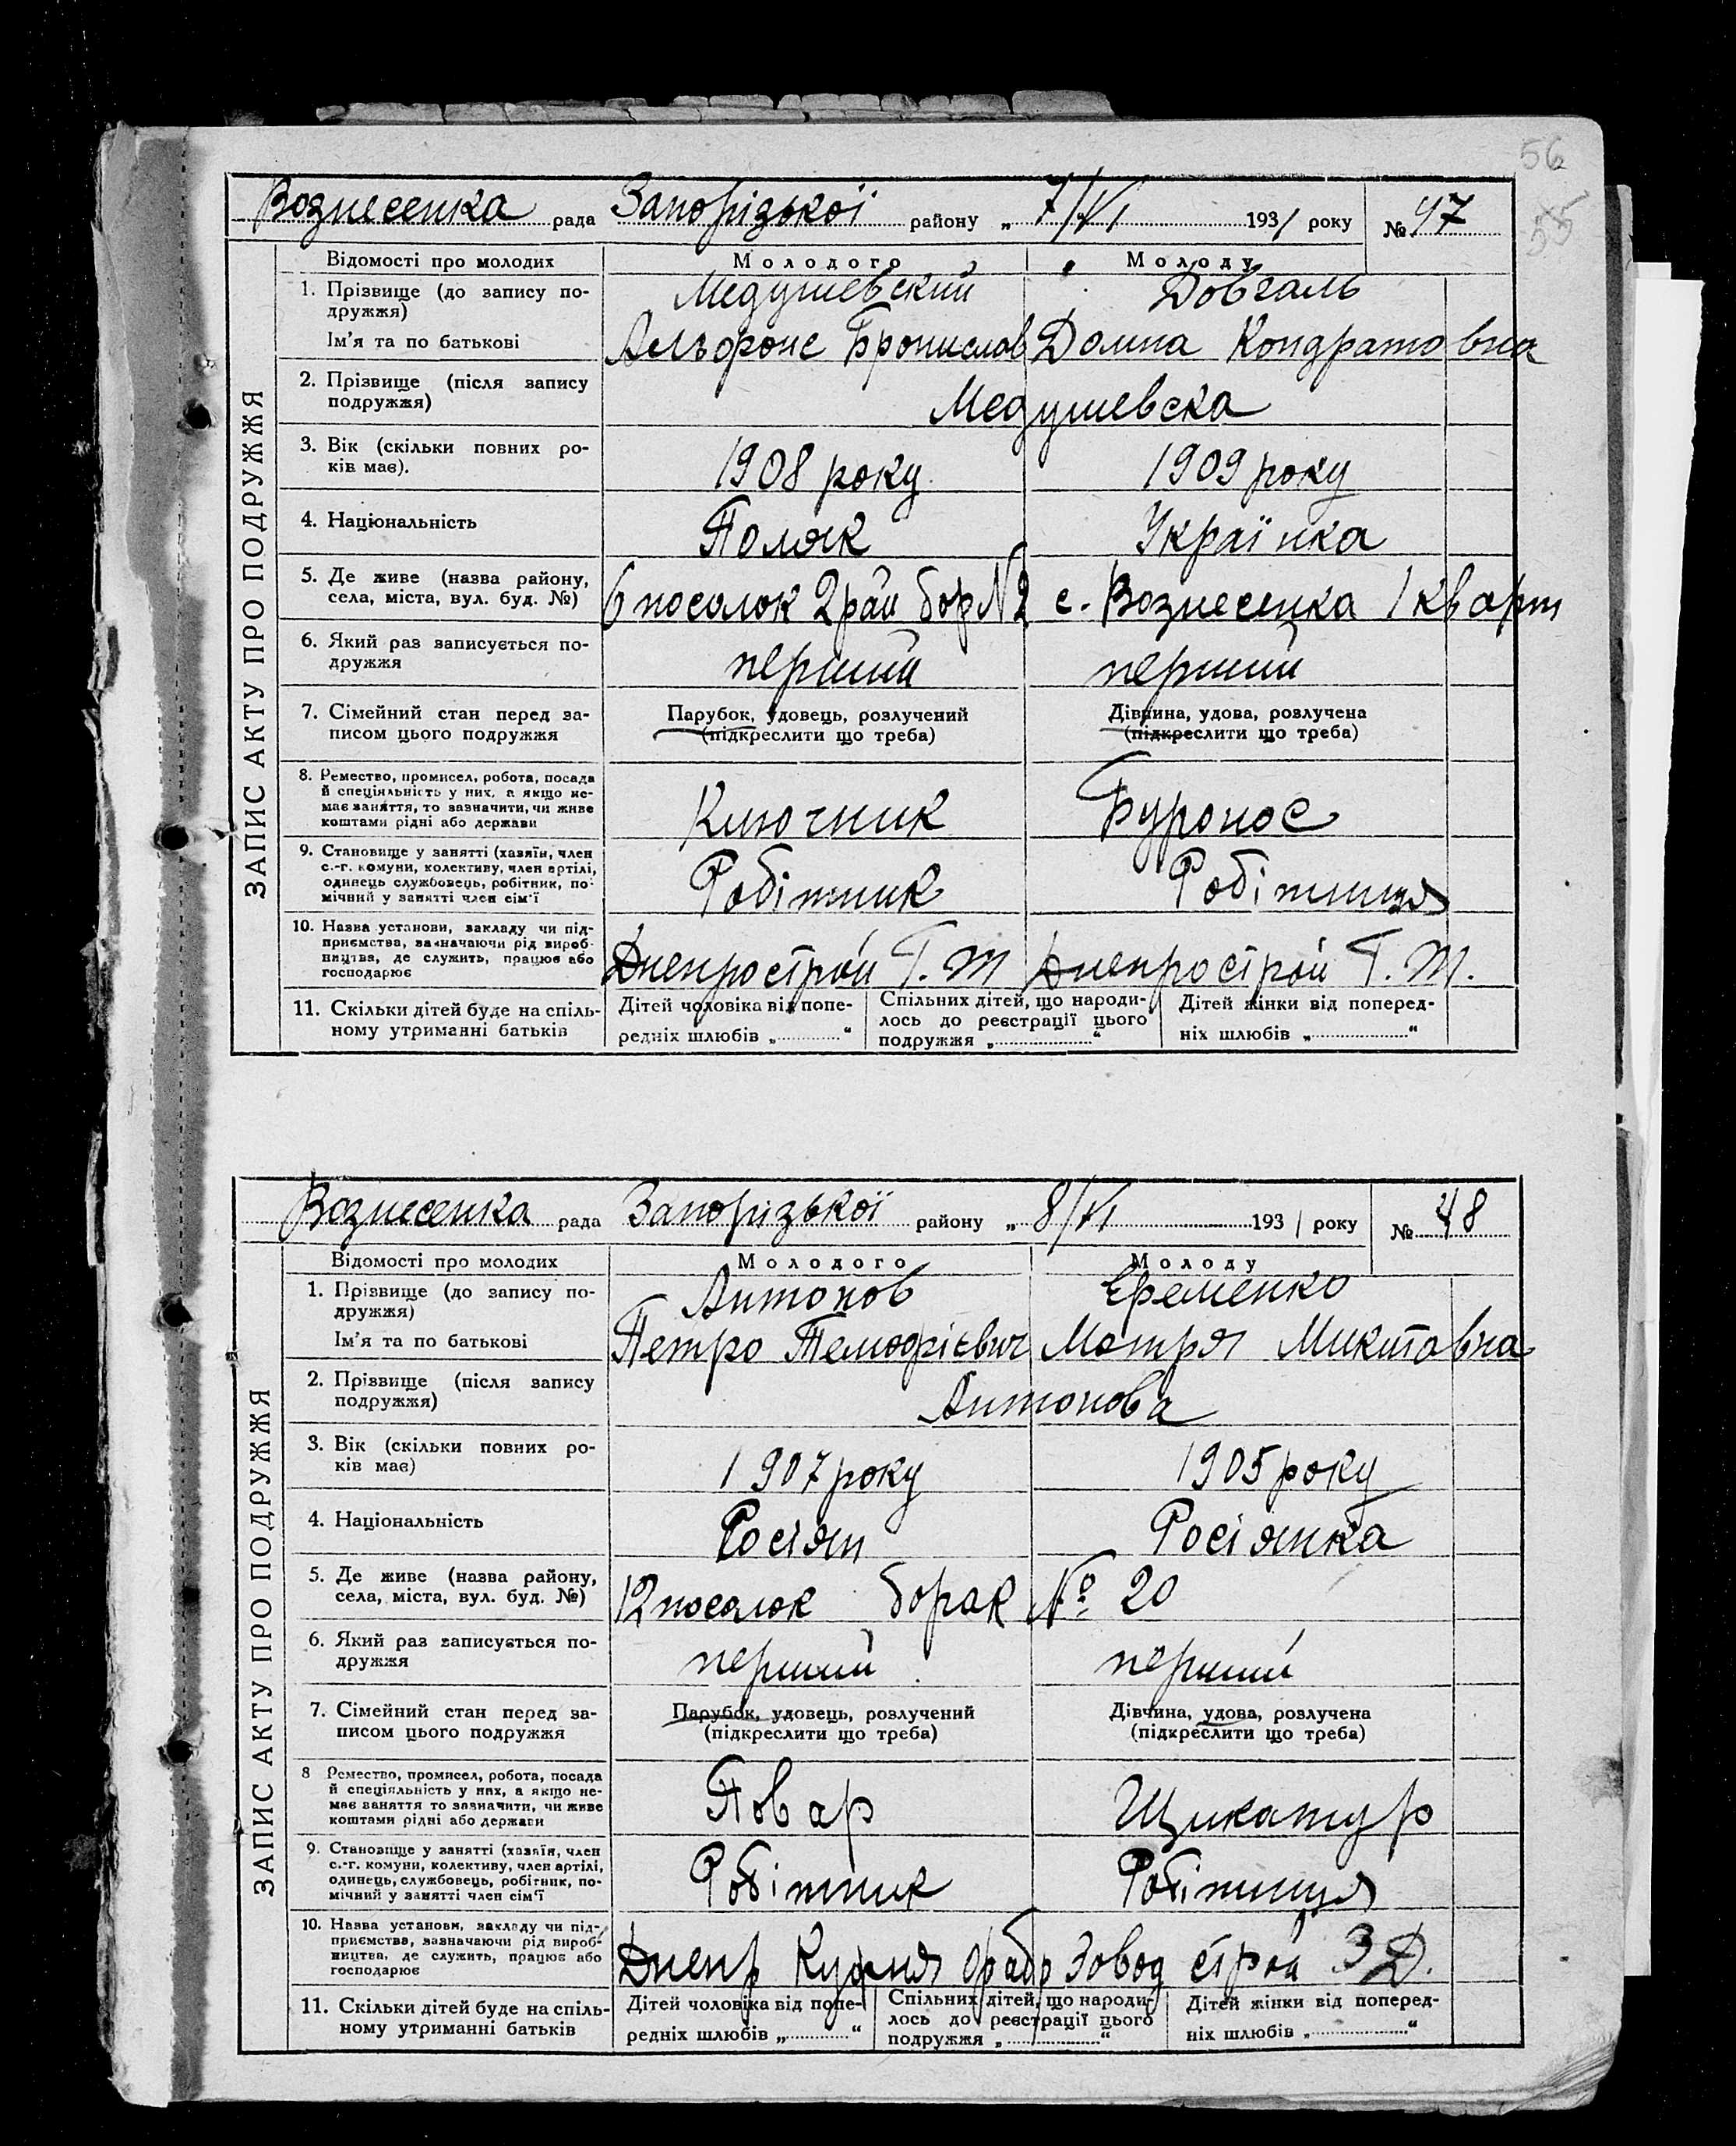 56
55
Вознесенка рада Запорізької району „ 7/VI 1931 року № 47
Відомості про молодих Молодого Молоду
1. Прізвище (до запису по-
дружжя) Медушевский Довгаль
Ім'я та по батькові Альфонс Бронислав Домна Кондратовна
2. Прізвище (після запису
подружжя) Медушевска
3. Вік (скільки повних ро-
ків має). 1908 року 1909 року
4. Національність Поляк Українка
5. Де живе (назва району,
села, міста, вул. буд. №) 6 поселок 2 рай бар №2 с. Вознесенка 1 кварт
6. Який раз записується по-
дружжя перший перший
7. Сімейний стан перед за-
писом цього подружжя
Парубок, удовець, розлучений
(підкреслити що треба)
Дівчина, удова, розлучена
(підкреслити що треба)
8. Ремество, промисел, робота, посада
й спеціяльність у них, а якщо не-
має заняття, то зазначити, чи живе
коштами рідні або держави
Ключник Буронос
9. Становище у занятті (хазяїн, член
с.-г. комуни, колективу, член артілі,
одинець службовець, робітник, по-
мічний у занятті член сім'ї
Робітник Робітниця
10. Назва установи, закладу чи під-
приємства, зазначаючи рід вироб-
ництва, де служить, працює або
господарює
Днепрострой Г. М Днепрострой Г. М.
11. Скільки дітей буде на спіль-
ному утриманні батьків
Дітей чоловіка від попе-
редніх шлюбів „ “
Спільних дітей, що народи-
лось до реєстрації цього
подружжя „ “
Дітей жінки від поперед-
ніх шлюбів „ “
ЗАПИС АКТУ ПРО ПОДРУЖЖЯ
Вознесенка рада Запорізької району „ 8/VI 1931 року № 48
Відомості про молодих Молодого Молоду
1. Прізвище (до запису по-
дружжя) Антонов Еременко
Ім'я та по батькові Петро Матря Микитовна
2. Прізвище (після запису
подружжя) Антонова
3. Вік (скільки повних ро-
ків має) 1907 року 1905 року
4. Національність Росіян Росіянка
5. Де живе (назва району,
села, міста, вул. буд. №) 12 поселок барак № 20
6. Який раз записується по-
дружжя перший перший
7. Сімейний стан перед за-
писом цього подружжя
Парубок, удовець, розлучений
(підкреслити що треба)
Дівчина, удова, розлучена
(підкреслити що треба)
8 Ремество, промисел, робота, посада
й спеціяльність у них, а якщо не-
має заняття то зазначити, чи живе
коштами рідні або держави
Повар Щикатур
9. Становище у занятті (хазяїн, член
с.-г. комуни, колективу, член артілі,
одинець, службовець, робітник, по-
мічний у занятті член сім'ї
Робітник Робітниця
10. Назва установи, закладу чи під-
приємства, зазначаючи рід вироб-
ництва, де служить, працює або
господарює
Днепр Кухня фабр Завод строй З Д.
11. Скільки дітей буде на спіль-
ному утриманні батьків
Дітей чоловіка від попе-
редніх шлюбів „ “
Спільних дітей, що народи-
лось до реєстрації цього
подружжя „ “
Дітей жінки від поперед-
ніх шлюбів „ “
ЗАПИС АКТУ ПРО ПОДРУЖЖЯ